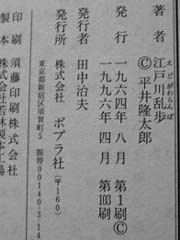 著者 江戸川乱歩
えどがわらんぽ
© 平井隆太郎
発行 一九六四年八月 第1刷©
一九九六年四月 第103刷
発行者 田中治夫
発行所 株式会社 ポプラ社 (〒160)
東京都新宿区須賀町5 振替00140-3-14
印刷 須藤印刷株式会社
製本 株式会社若林製本工場